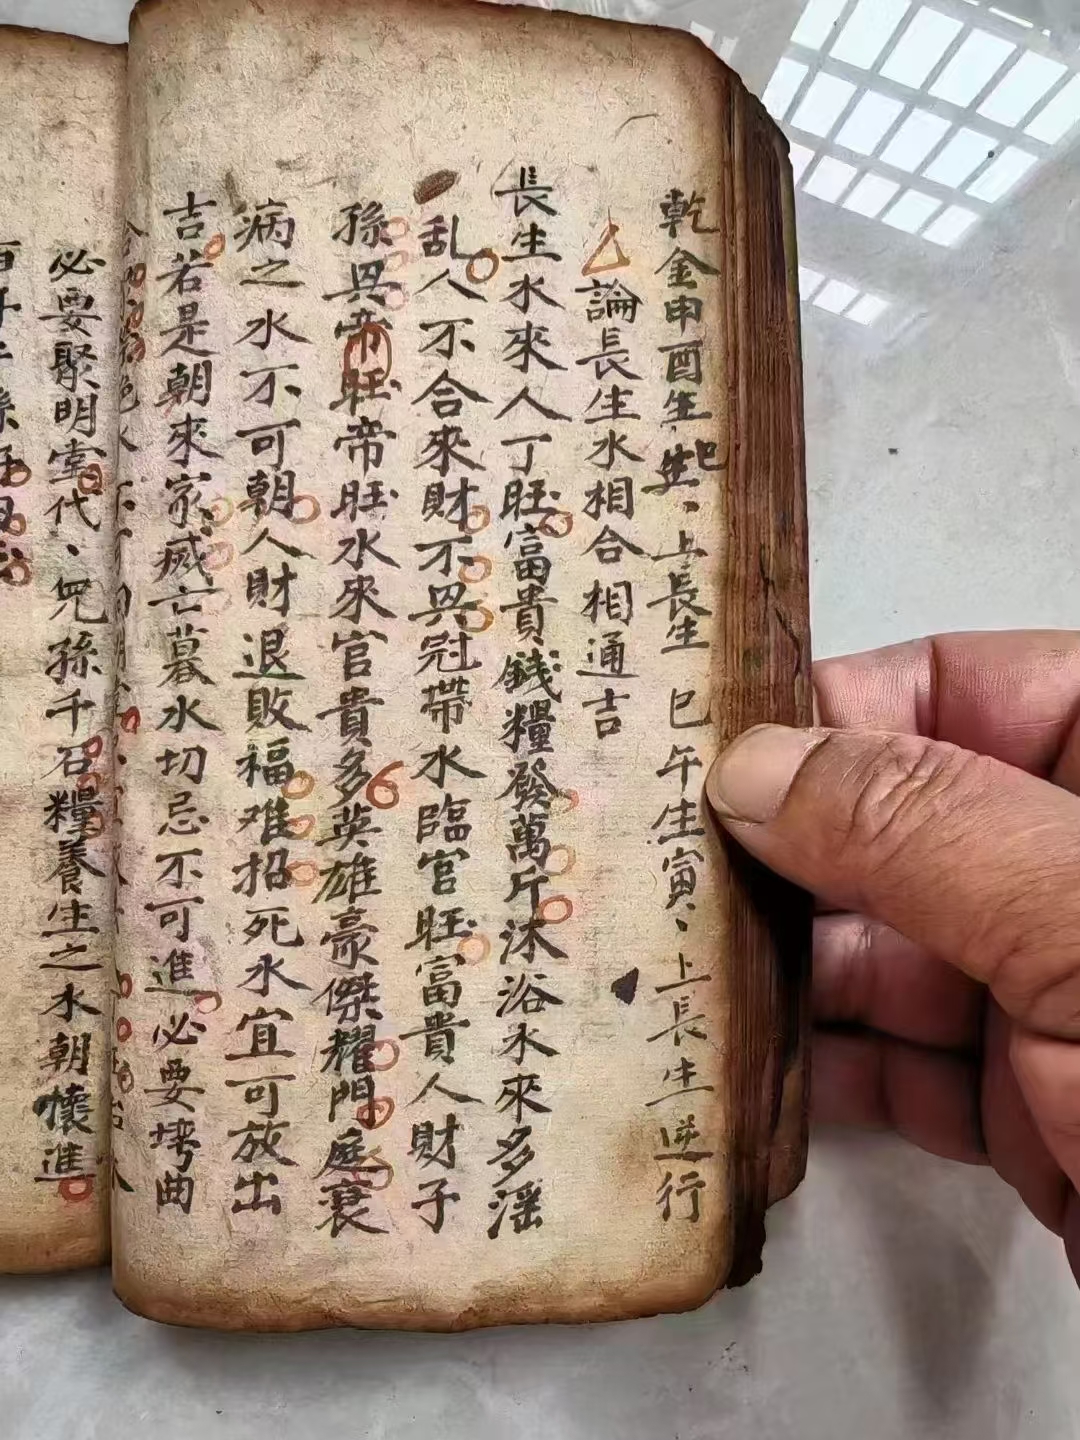 乾金申酉生巽巳、上長生 巳午生寅、上長生逆行
論長生水相合相通吉
長生水來人丁旺富貴錢糧發萬斤沐浴水來多淫
乱人不合來財不興冠帶水臨官旺富貴人財子
孫興帝旺帝旺水來官貴多英雄豪傑耀門庭衰
病之水不可朝人財退敗福难招死水宜可放出
吉若是朝來家滅亡墓水切忌不可進必要塆曲
必要聚明堂代、兒孫千石糧養生之水朝懷進